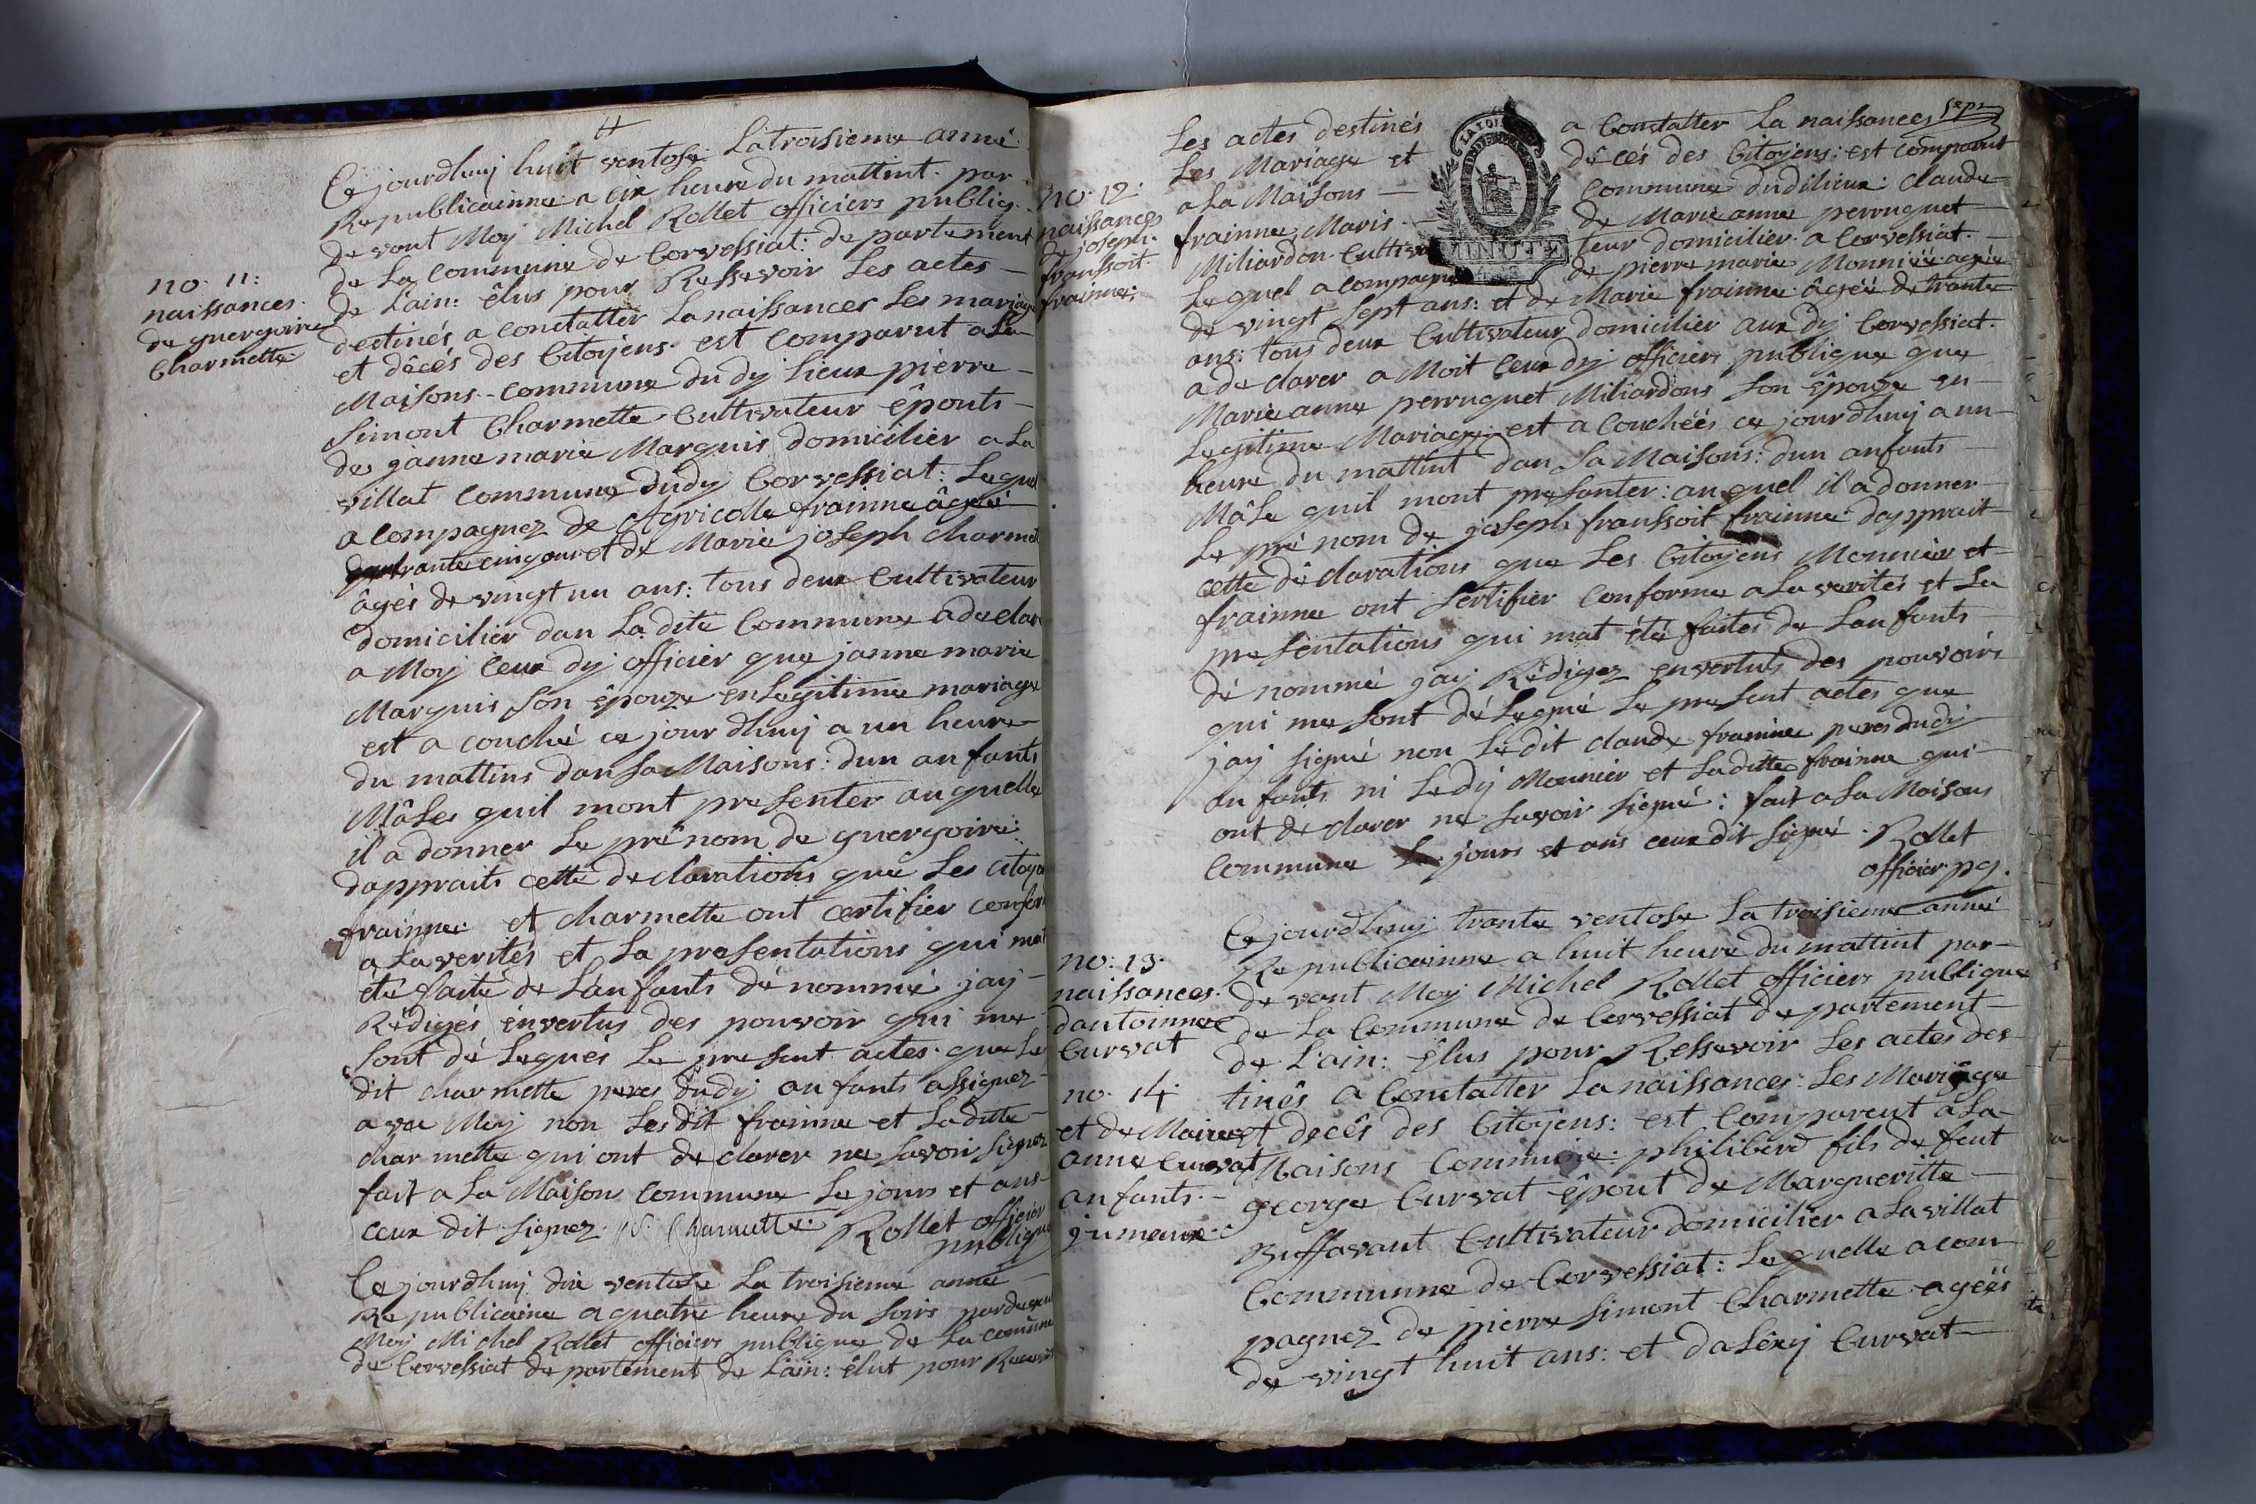 no. 11:
naissances.
de guergoire
Charmette
Ce jourdhuy huit ventose. La troisieme anné
Republicainne a six heure du mattint. par
de vant Moy Michel Rollet officiers publiq.
de La commune de Corvessiat: de partement
de L'ain: êlus pour Ressevoir Les actes —
destinés a constatter La naissances Les mariage
et dêcés des Citoyens. est comparut a La
Maisons - commune du dy Lieux pierre —
Simont Charmette Cultivateur êpouts —
de janne marie Marquis domicilier a La
villat Commune dudy Corvessiat: Lequel
a compagnez de Agricolle frainne âgéé
trante cinq ans et de Marie joseph charmet
âgés de vingt un ans: tous deux Cultivateur
domicilier dan La dite Commune a declar
a Moy ceux dy officier que janne marie
Marquis Son êpouze en Legitime mariage
est a couché ce jour dhuy a un heure —
du mattins dan Sa Maisons: dun anfants
Mâles quil mont presenter au quelle
il a donner Le prênom de guergoire:
dappraits cette declarations que Les citoye
frainne: et charmette ont certifier confor
a La verités et La presentations qui mat
été faite de L'anfants dénommé jay —
Rêdigés envertus des pouvoir qui me
Sont dé Legués Le present actes que Le
dit charmette peres dudy anfants assignez
avec Moy non Les dit frainne et Ladite —
charmette qui ont declarer ne Savoir Signez
fait a La Maison commune Le jours et ans
ceux dit Signez. P S. Charmette. Rollet officier
publique
Ce jourdhuy dix ventose La troisieme anné —
Republicaine a quatre heure du Soirs pardevant
Moy Michel Rollet officiers publique de La commune
de Corvessiat de partement de L'ain: êlut pour Recevoir
Sept
no. 12:
naissances
de joseph.
franssoit.
frainne:
Les actes destinés a Constatter La naissances
Les Mariage et dêcés des Citoyens: est comparut
a La Maisons — Commune dudilieux: claude
frainne, Maris de Marie anne perruquet —
Miliardon. Cultiva teur domicilier. a Corvessiat. —
Lequel a compagné de pierre marie Monnier agéé
de vingt Sept ans: et de Marie frainne âgéé de trante
ans: tous deux Cultivateur domicilier aux dy Corvessiat.
a declarer a Moit ceux dy officiers publique que
Marie anne perruquet Miliardons Son êpouze en —
Legitime Mariage: est a Couchéés ce jourdhuy a un —
heure du mattint dan Sa Maisons: dun anfants —
Mâle quil mont presanter: auquel il a donner —
Le prénom de joseph franssoit frainne dappraits —
cette dêclarations que Les Citoyens Monnier et —
frainne ont Sertifier Conforme a La verités et La
presentations qui mat été faites de Lanfants —
dé nommé jay Rêdigez envertuts des pouvoirs
qui me Sont dé Legué Le present actes que
jay signé non Le dit claude frainne peres dudy
anfants ni Ledy Monnier et Laditte frainne qui —
ont declarer ne Savoir Signé: fait a La Maisons
Commune jours et ans ceux dit signé. Rollet
officier pq.
no: 13.
naissances.
dantoinnee
Curvat
no. 14
et de Marie
anne Curvat
anfants. —
jumeaux.
Ce jourdhuy trante ventose La troisieme anné
Republicainne a huit heure du mattint par —
de vant Moy Michel Rollet officiers publique
de La Commune de Corvessiat de partement —
de L'ain: êlus pour Ressevoir Les actes des
tinês a Constatter La naissances: Les Mariage
et decês des Citoyens: est Comparent a La —
Maisons Commune: philiberd fils de feut
george Curvat êpout de Margueritte —
Buffavant Cultivateur domicilier a La villat
Commune de Corvessiat: Lequelle a com
pagnez de pierre Simont Charmette agéés
de vingt huit ans: et d alêxy Curvat —